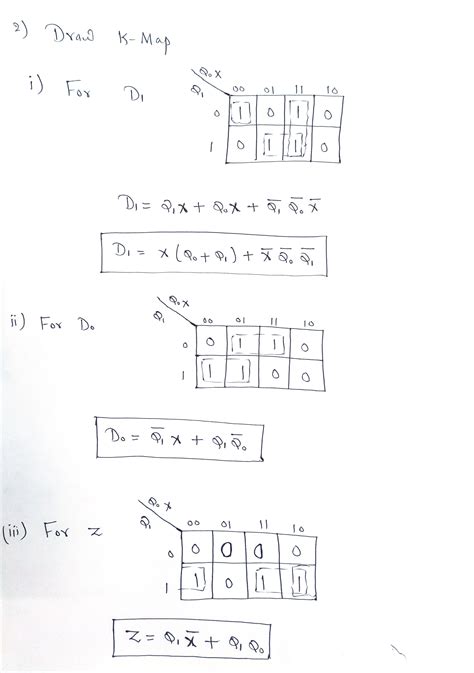 2) Draw K-Map
i) For D₁
Q₀X
Q₁ 00 01 11 10
0 1 0 1 0
1 0 1 1 0
D₁ = Q₁X + Q₀X + Q̅₁ Q̅₀ X̅
D₁ = X (Q₀ + Q₁) + X̅ Q̅₀ Q̅₁
ii) For D₀
Q₀X
Q₁ 00 01 11 10
0 0 1 1 0
1 1 1 0 0
D₀ = Q̅₁ X + Q₁ Q̅₀
(iii) For Z
Q₀ X
Q₁ 00 01 11 10
0 0 0 0 0
1 1 0 1 1
Z = Q₁ X̅ + Q₁ Q₀